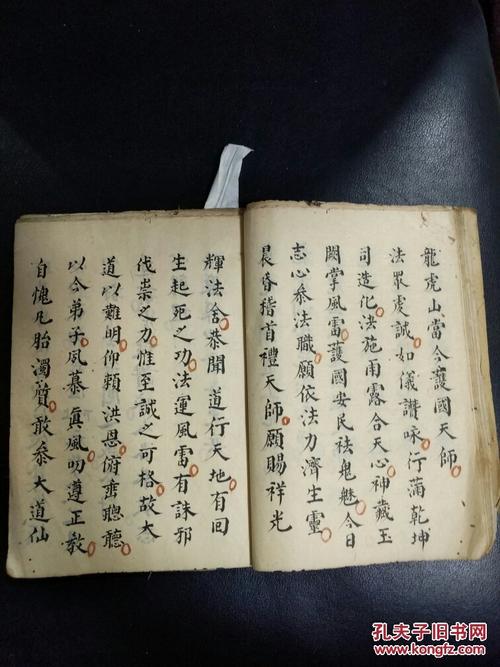 龍虎山當今護國天師
法眾虔誠如儀讚咏行滿乾坤
司造化法施雨露合天心神藏玉
闕掌風雷護國安民祛鬼魅今日
志心叅法職願依法力濟生靈
晨昏稽首禮天師願賜祥光
輝法舍恭聞道行天地有回
生起死之功法運風雷有誅邪
伐祟之力惟至誠之可格故大
道以難明仰賴洪恩俯垂聰聽
以今弟子夙慕真風叨遵正教
自愧凡胎濁質敢叅大道仙
孔夫子旧书网
kongfz.com